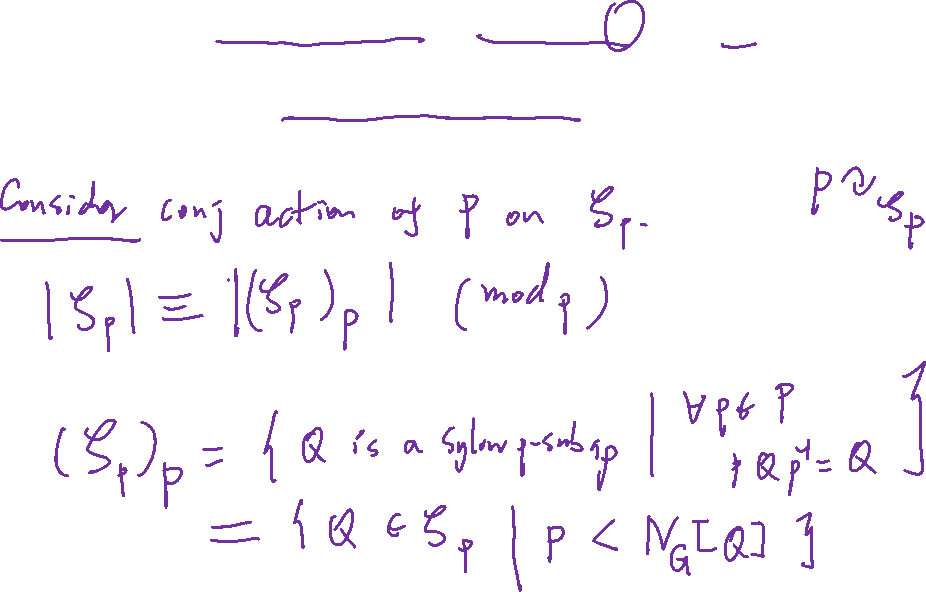 Consider conj action of P on 𝒮ₚ. P ↷ 𝒮ₚ
|𝒮ₚ| ≡ |(𝒮ₚ)_P| (mod p)
(𝒮ₚ)_P = { Q is a Sylow p-subgp | ∀p∈P pQp⁻¹ = Q }
= { Q ∈ 𝒮ₚ | P < N_G[Q] }